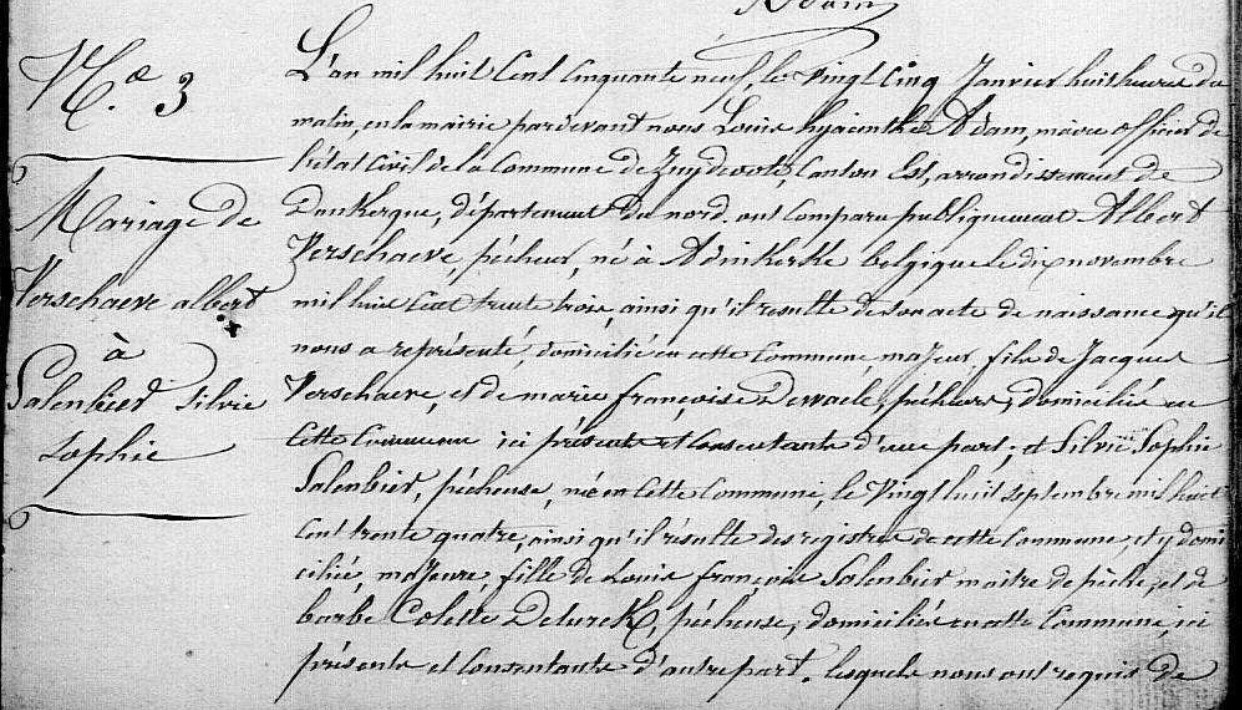 Adam
N.º 3
Mariage de
Verschaeve albert
à
Salenbier Silvie
Sophie
L'an mil huit Cent Cinquante neuf, le Vingt Cinq Janvier huit heures du
matin, en la mairie pardevant nous Louis hyacinthe Adam, maire officier de
l'état Civil de la Commune de Zuydcoote, Canton Est, arrondissement de
Dunkerque, département du nord, ont Comparu publiquement Albert
Verschaeve, pêcheur, né à Adinkerke belgique le dix novembre
mil huit Cent trente trois, ainsi qu'il résulte de son acte de naissance qu'il
nous a représenté, domicilié en cette Commune, majeur, fils de Jacques
Verschaeve, et de marie françoise Dewaele, pêcheurs, domiciliés en
Cette Commune ici présents et Consentants d'une part ; et Silvie Sophie
Salenbier, pêcheuse, née en Cette Commune, le Vingt huit septembre mil huit
cent trente quatre, ainsi qu'il résulte des registres de cette Commune, et y domi
ciliée, majeure, fille de Louis françois Salenbier maitre de pêche, et de
barbe Colette DeturcK, pêcheuse, domiciliés en cette Commune, ici
présents et Consentants d'autre part. lesquels nous ont requis de